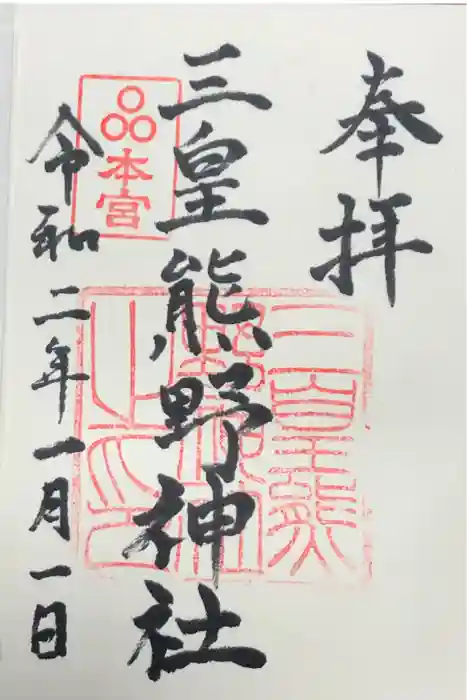 奉拝
三皇熊野神社
本宮
三皇熊
野神社
之印
令和二年一月一日